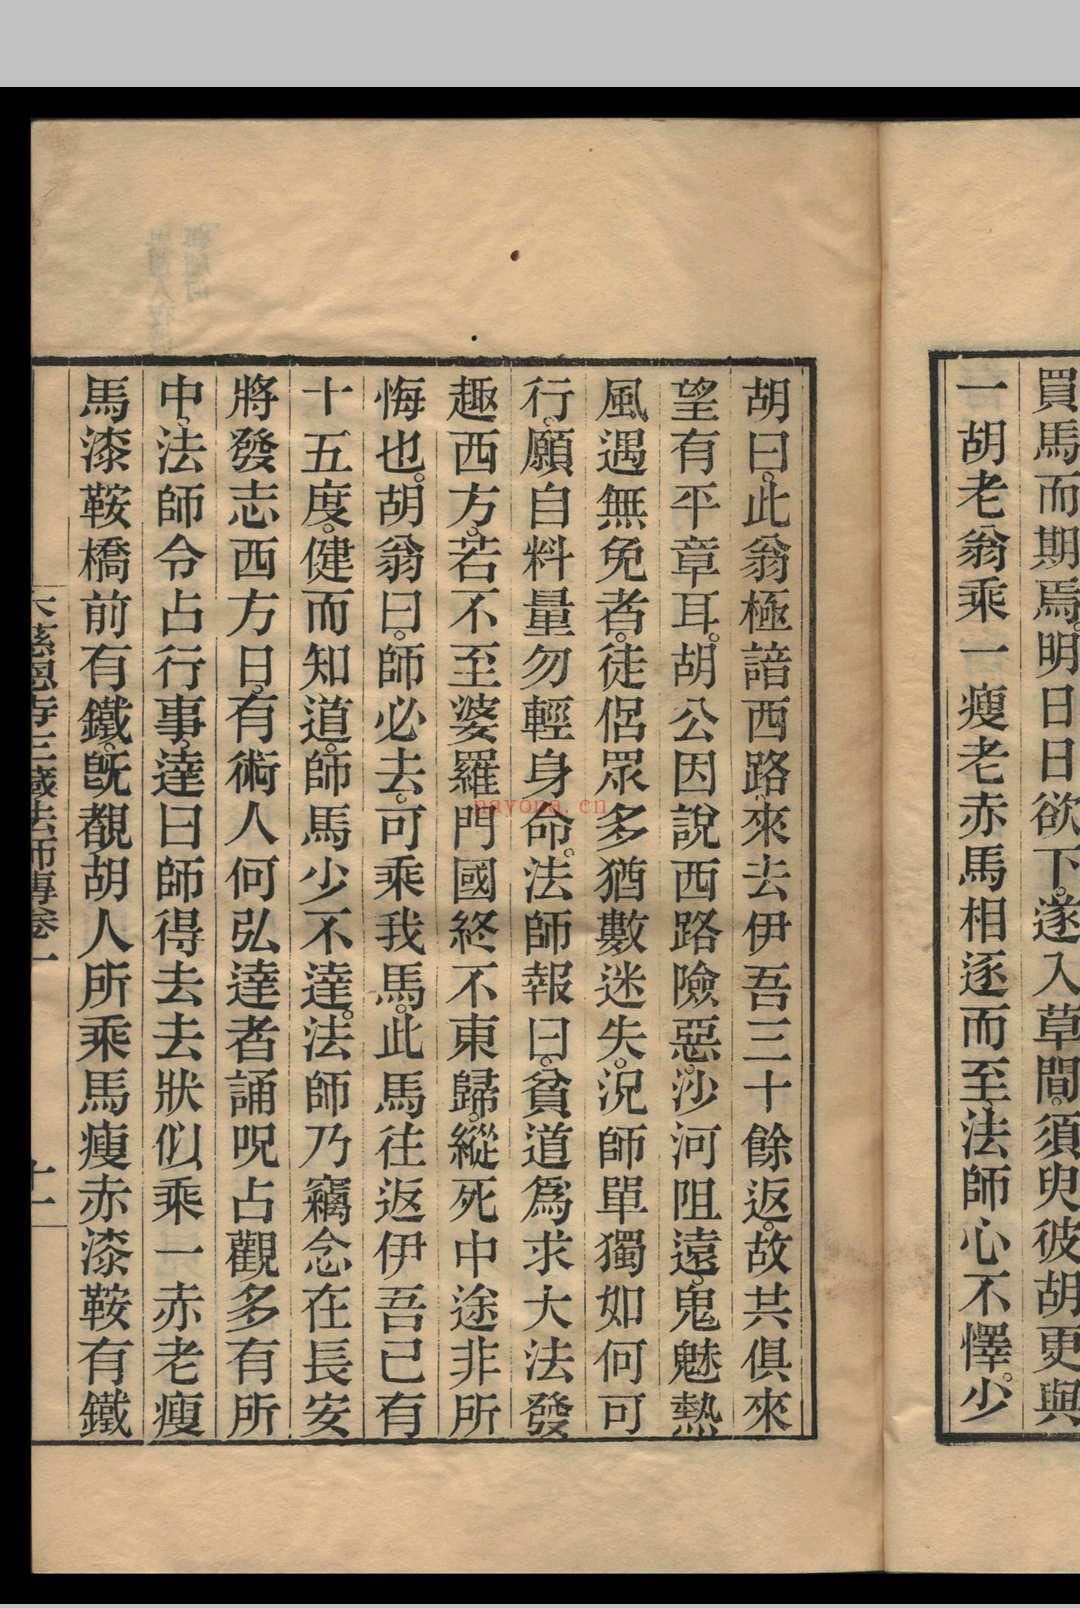 買馬而期焉。明日日欲下。遂入草間。須臾彼胡更與
一胡老翁乘一瘦老赤馬相逐而至。法師心不懌。少
胡曰。此翁極諳西路。來去伊吾三十餘返。故共俱來
望有平章耳。胡公因說西路險惡。沙河阻遠。鬼魅熱
風遇無免者。徒侶眾多猶數迷失。況師單獨如何可
行。願自料量勿輕身命。法師報曰。貧道爲求大法發
趣西方。若不至婆羅門國終不東歸。縱死中途非所
悔也。胡翁曰。師必去。可乘我馬。此馬往返伊吾已有
十五度。健而知道。師馬少不達。法師乃竊念在長安
將發志西方日。有術人何弘達者誦呪占觀多有所
中。法師令占行事。達曰師得去去狀似乘一赤老瘦
馬漆鞍橋前有鐵。既覩胡人所乘馬瘦赤漆鞍有鐵
大慈恩寺三藏法師傳卷一 十一
nayona.cn